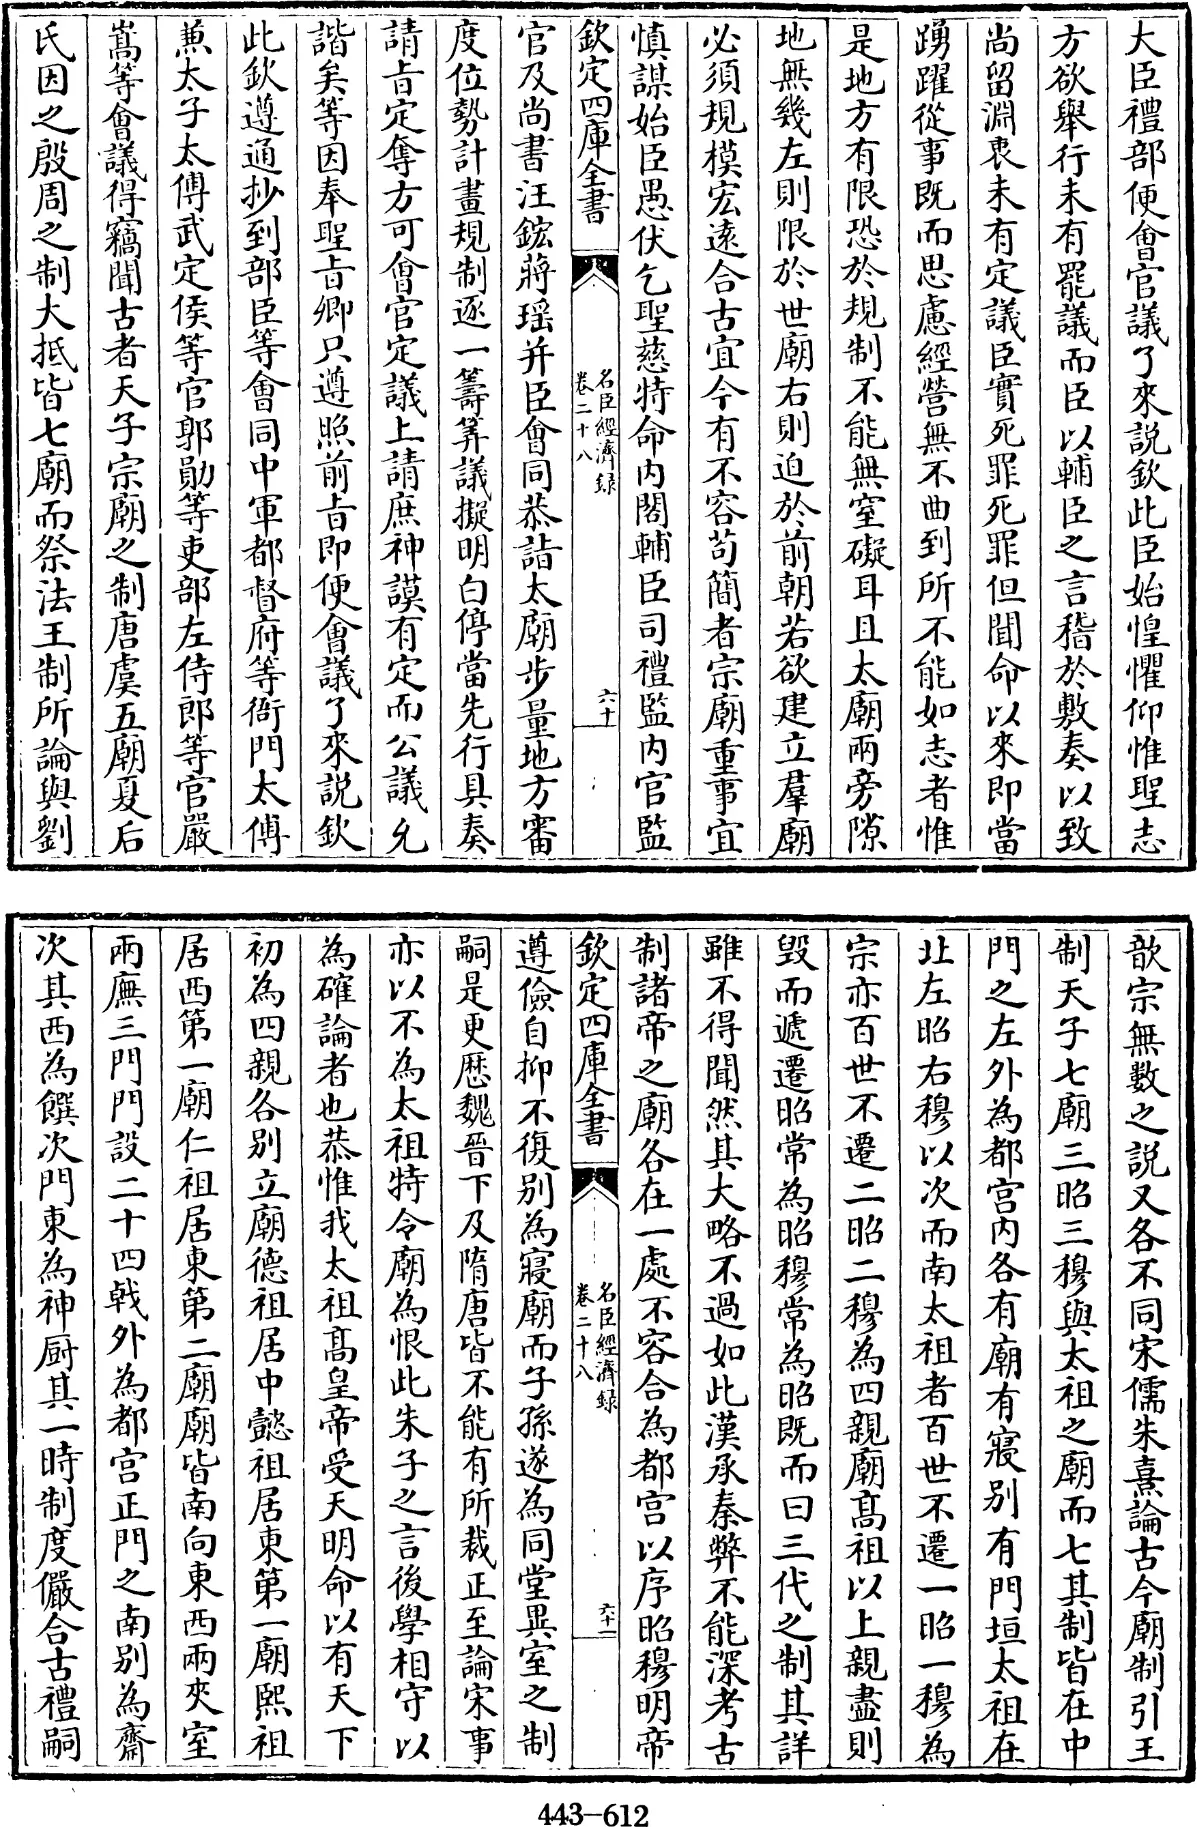 大臣禮部便會官議了來說欽此臣始惶懼仰惟聖志
方欲舉行未有罷議而臣以輔臣之言稽於敷奏以致
尚留淵衷未有定議臣實死罪死罪但聞命以來即當
踴躍從事既而思慮經營無不曲到所不能如志者惟
是地方有限恐於規制不能無窒礙耳且太廟兩旁隙
地無幾左則限於世廟右則迫於前朝若欲建立羣廟
必須規模宏遠合古宜今有不容苟簡者宗廟重事宜
慎謀始臣愚伏乞聖慈特命内閣輔臣司禮監内官監
欽定四庫全書
名臣經濟録
卷二十八
六十
官及尚書汪鋐蔣瑶并臣會同恭詣太廟步量地方審
度位勢計畫規制逐一籌筭議擬明白停當先行具奏
請㫖定奪方可會官定議上請庶神謨有定而公議允
諧矣等因奉聖㫖卿只遵照前㫖即便會議了來說欽
此欽遵通抄到部臣等會同中軍都督府等衙門太傅
兼太子太傅武定侯等官郭勛等吏部左侍郎等官嚴
嵩等會議得竊聞古者天子宗廟之制唐虞五廟夏后
氏因之殷周之制大抵皆七廟而祭法王制所論與劉
歆宗無數之說又各不同宋儒朱熹論古今廟制引王
制天子七廟三昭三穆與太祖之廟而七其制皆在中
門之左外為都宫内各有廟有寢别有門垣太祖在
北左昭右穆以次而南太祖者百世不遷一昭一穆為
宗亦百世不遷二昭二穆為四親廟髙祖以上親盡則
毁而遞遷昭常為昭穆常為昭既而曰三代之制其詳
雖不得聞然其大略不過如此漢承秦弊不能深考古
制諸帝之廟各在一處不容合為都宫以序昭穆明帝
欽定四庫全書
名臣經濟録
卷二十八
六十一
遵儉自抑不復别為寢廟而子孫遂為同堂異室之制
嗣是更歷魏晉下及隋唐皆不能有所裁正至論宋事
亦以不為太祖特令廟為恨此朱子之言後學相守以
為確論者也恭惟我太祖髙皇帝受天明命以有天下
初為四親各别立廟德祖居中懿祖居東第一廟熙祖
居西第一廟仁祖居東第二廟廟皆南向東西兩夾室
兩廡三門門設二十四戟外為都宫正門之南别為齋
次其西為饌次門東為神厨其一時制度儼合古禮嗣
443-612